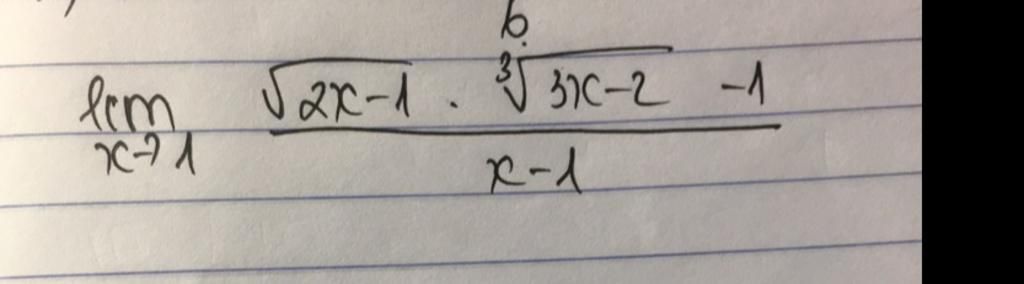 b.
lim x→1 (√(2x-1) . ∛(3x-2) -1)/(x-1)